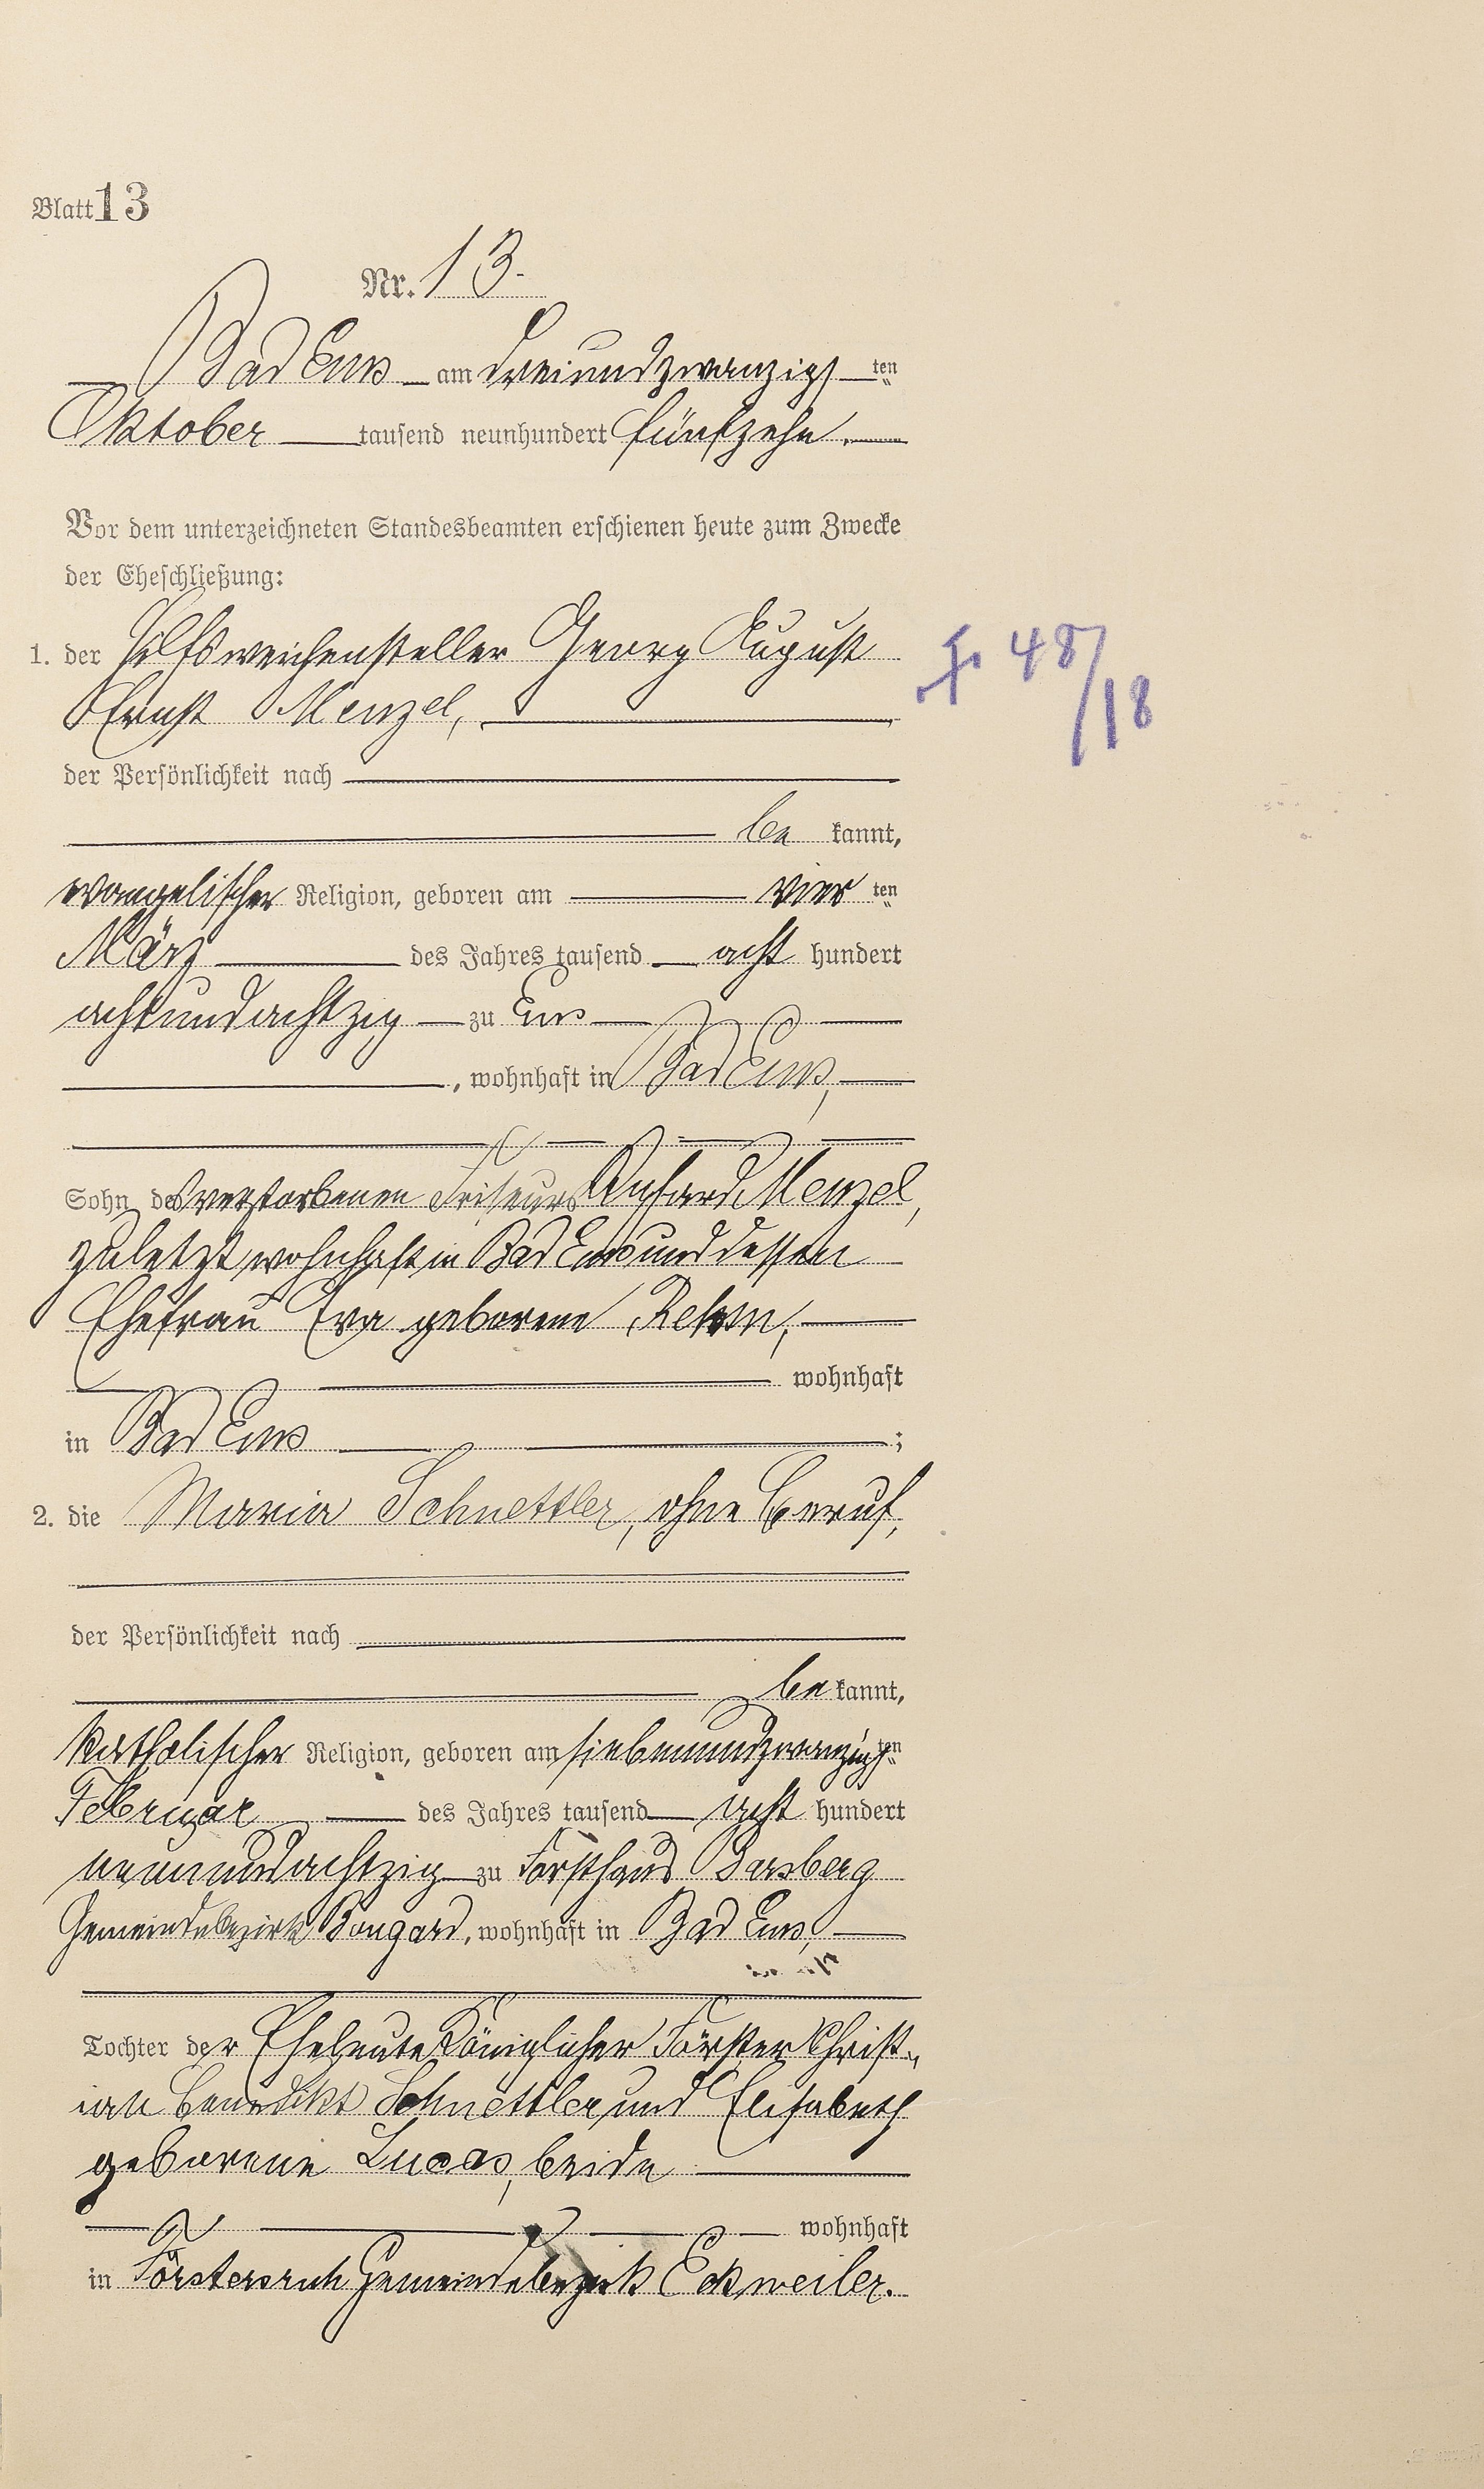 Blatt 13
Nr. 13.
Bad Ems am dreiundzwanzigsten
Oktober tausend neunhundert fünfzehn.
Vor dem unterzeichneten Standesbeamten erschienen heute zum Zwecke
der Eheschließung:
1. der Hilfsweichensteller Georg August
Ernst Menzel,
48/18
der Persönlichkeit nach
be kannt,
evangelischer Religion, geboren am vier ten
März des Jahres tausend acht hundert
achtundachtzig zu Ems
, wohnhaft in Bad Ems,
Sohn des verstorbenen Friseurs Menzel,
zuletzt wohnhaft in Bad Ems und dessen
Ehefrau Eva geborene Rehm,
wohnhaft
in Bad Ems ;
2. die Maria Schnettler, ohne Beruf,
der Persönlichkeit nach
be kannt,
katholischer Religion, geboren am siebenundzwanzigsten
Februar des Jahres tausend acht hundert
neunundachtzig zu Forsthaus Barsberg
Gemeindebezirk Bongard, wohnhaft in Bad Ems,
Tochter der Eheleute Königlicher Förster Christ-
ian Benedikt Schnettler und Elisabeth
geborene Lucas, beide
wohnhaft
in Förstersruh Gemeindebezirk Eckweiler.